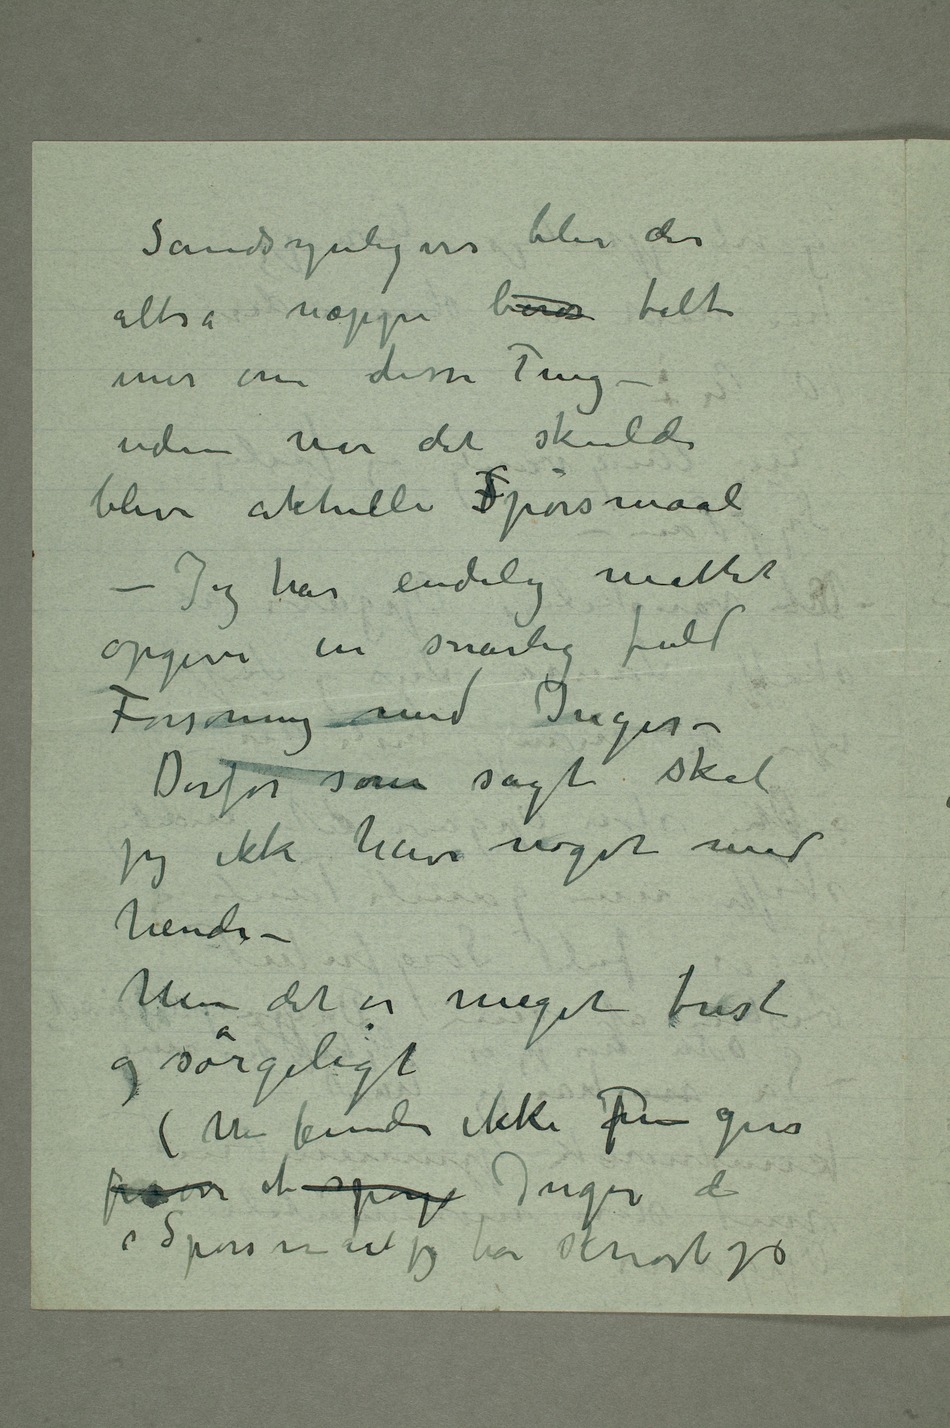 Sandsynligvis blir der
altså næppe talt
mer om disse Ting –
uden når det skulde
blive aktuelle Spörsmaal
– Jeg har endelig måttet
opgive en snarlig fuld
Forsoning med Inger –
Derfor som sagt skal
jeg ikke have noget med
hende –
Men det er meget trist
og sörgeligt
(Men kunde ikke gjøre
at Inger de
Spörsmål jeg har skrevet